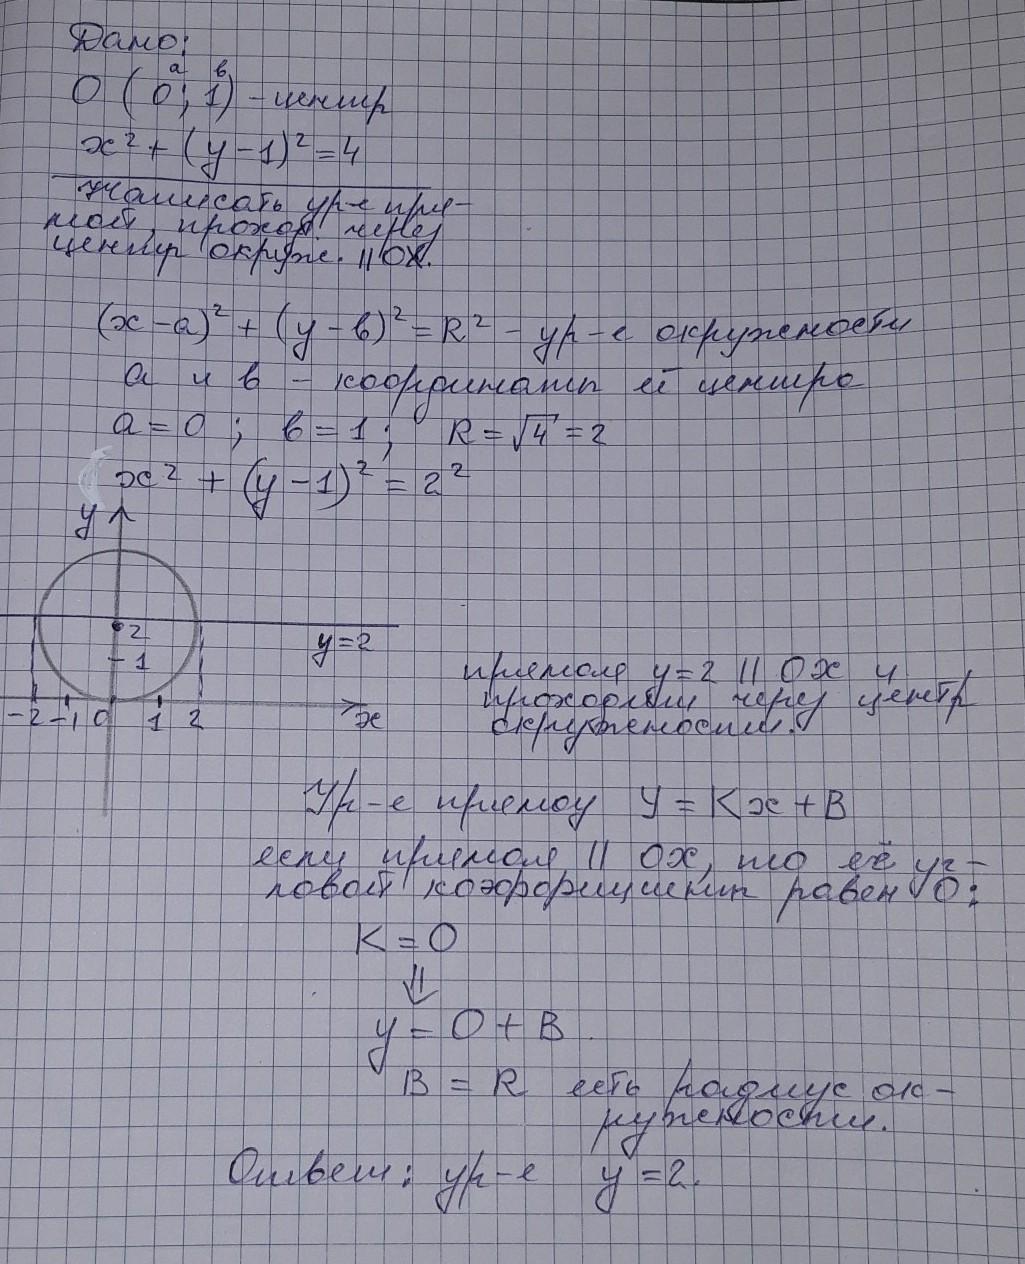 Дано:
a в
О (0; 1) - центр
x² + (y - 1)² = 4
Написать ур-е пря-
мой, проход через
центр окруж. || OX.
(x - a)² + (y - в)² = R² - ур-е окружности
a и в - координаты её центра
a = 0 ; в = 1 ; R = √4 = 2
x² + (y - 1)² = 2²
y
2
y = 2
1
-2 -1 0 1 2 x
прямая y = 2 || Ox и
проходит через центр
окружности.
Ур-е прямой y = Kx + B
если прямая || Ox, то её уг-
ловой коэффициент равен 0:
K = 0
⇓
y = 0 + B
B = R есть радиус ок-
ружности.
Ответ: ур-е y = 2.